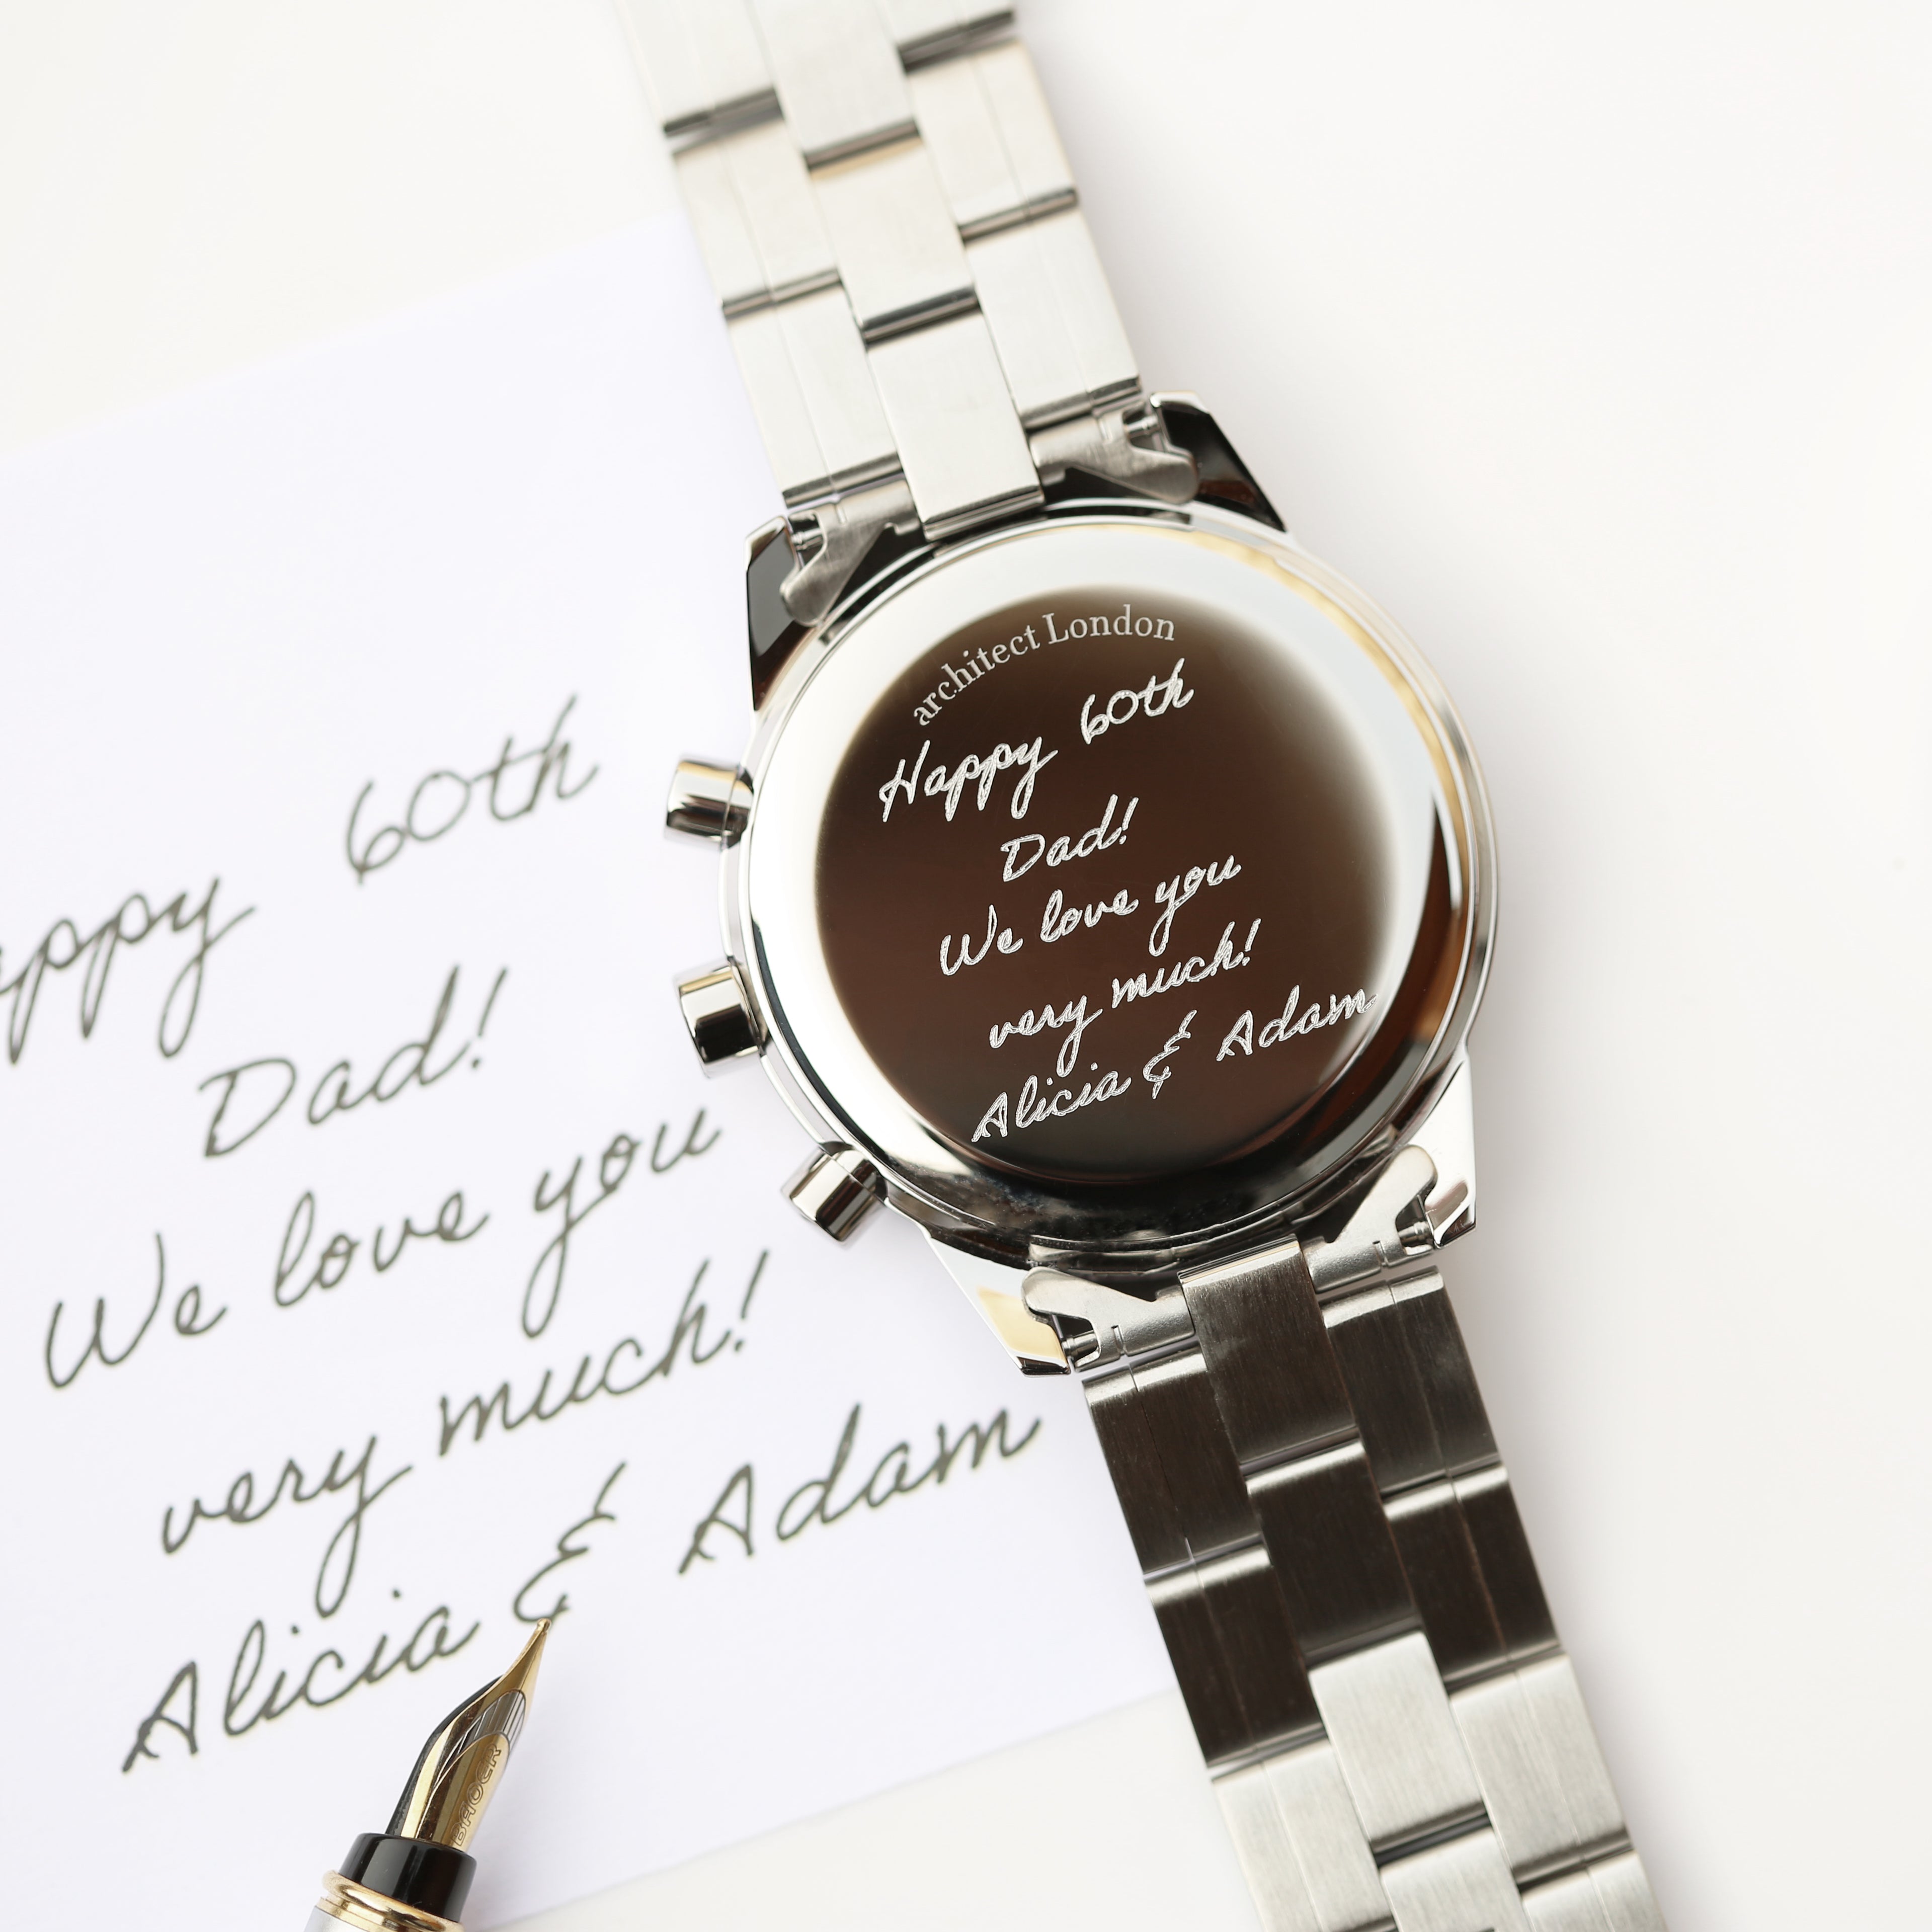 architect London
Happy 60th
Dad!
We love you
very much!
Alicia & Adam
appy 60th
Dad!
We love you
very much!
Alicia & Adam